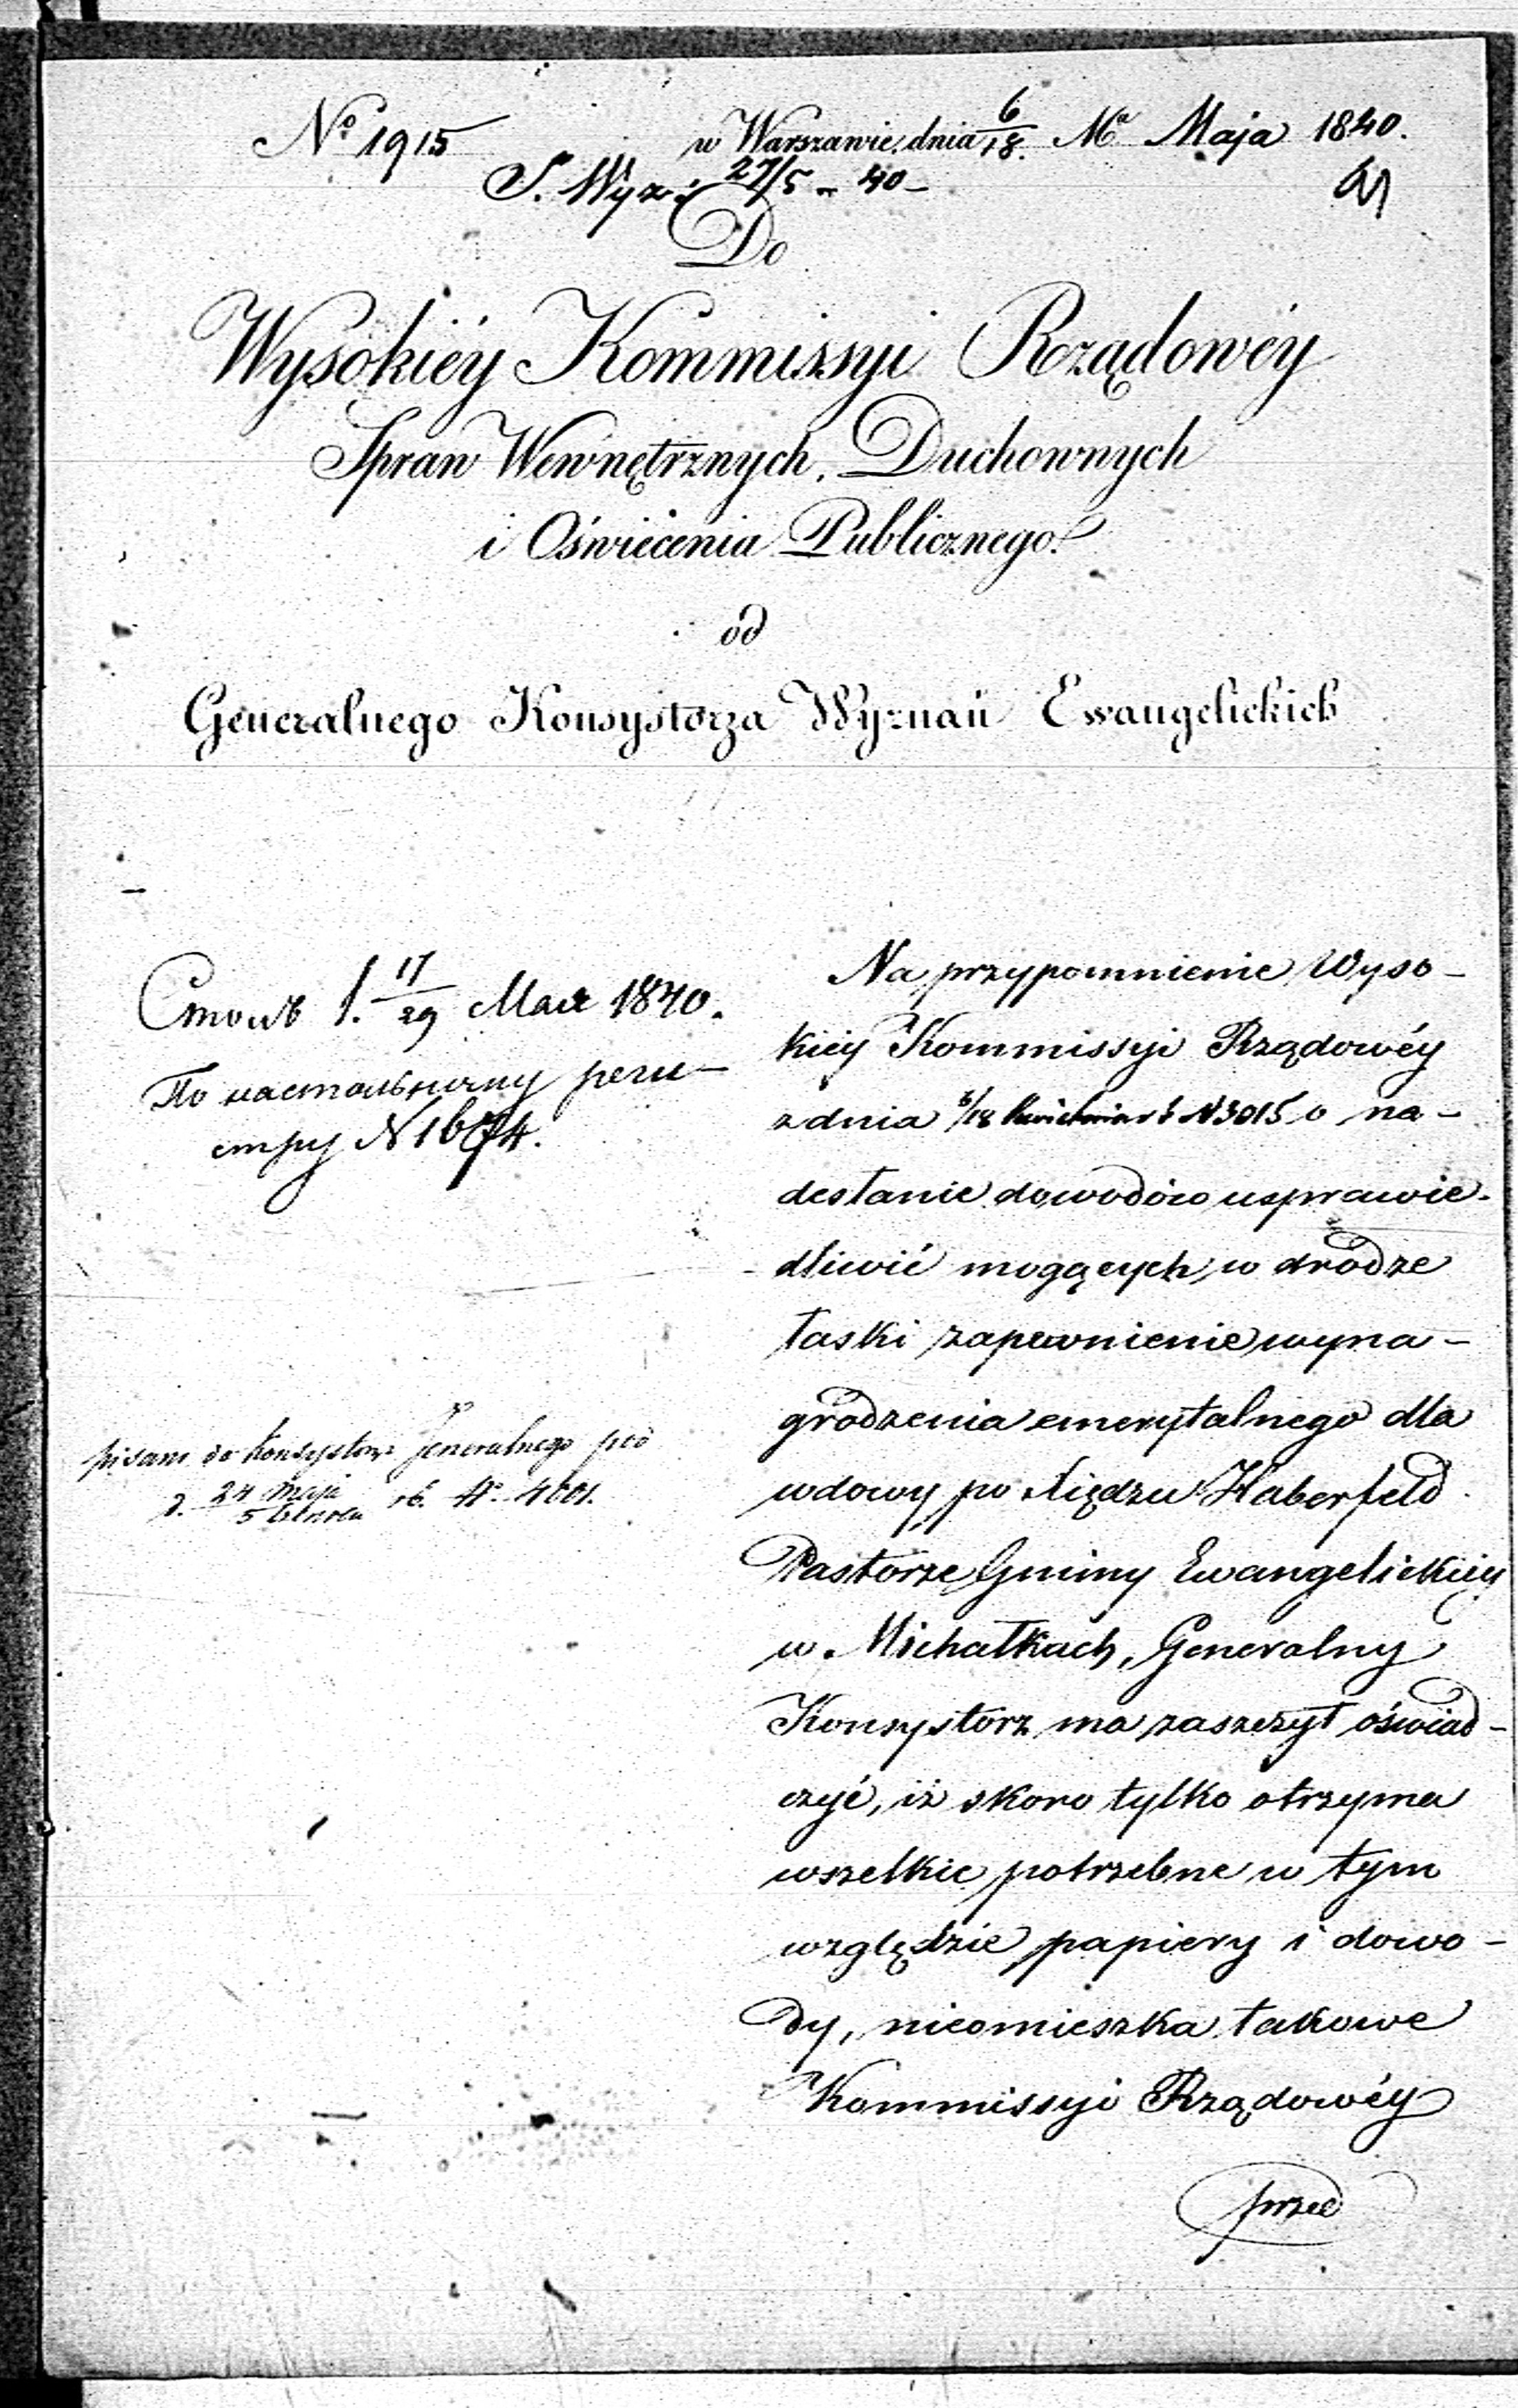 No 1915
w Warszawie dnia 6/18. Mca Maja 1840.
S. Wyz: 27/5 - 40 -
Do
Wysokiéy Kommissyi Rządowéy
Spraw Wewnętrznych, Duchownych
i Oświécenia Publicznego.
od
Generalnego Konsystorza Wyznań Ewangelickich
Столъ 1. 17/29 Мая 1840.
По настольному реги-
стру N 1674.
pisano do Konsystorza Generalnego pod
d. 24 Maja/5 Czerwca rb. No 4601.
Na przypomnienie Wyso-
kiéy Kommissyi Rządowéy
z dnia 6/18 Kwietnia r b N 3015 o na-
desłanie dowodów usprawie-
dliwić mogących w drodze
łaski zapewnienie wyna-
grodzenia emerytalnego dla
wdowy po Xiędzu Haberfeld
Pastorze Gminy Ewangelickiéy
w Michałkach, Generalny
Konsystorz ma zaszczyt oświad-
czyć, iż skoro tylko otrzyma
wszelkie potrzebne w tym
względzie papiery i dowo-
dy, nieomieszka takowe
Kommissyi Rządowéy
przed